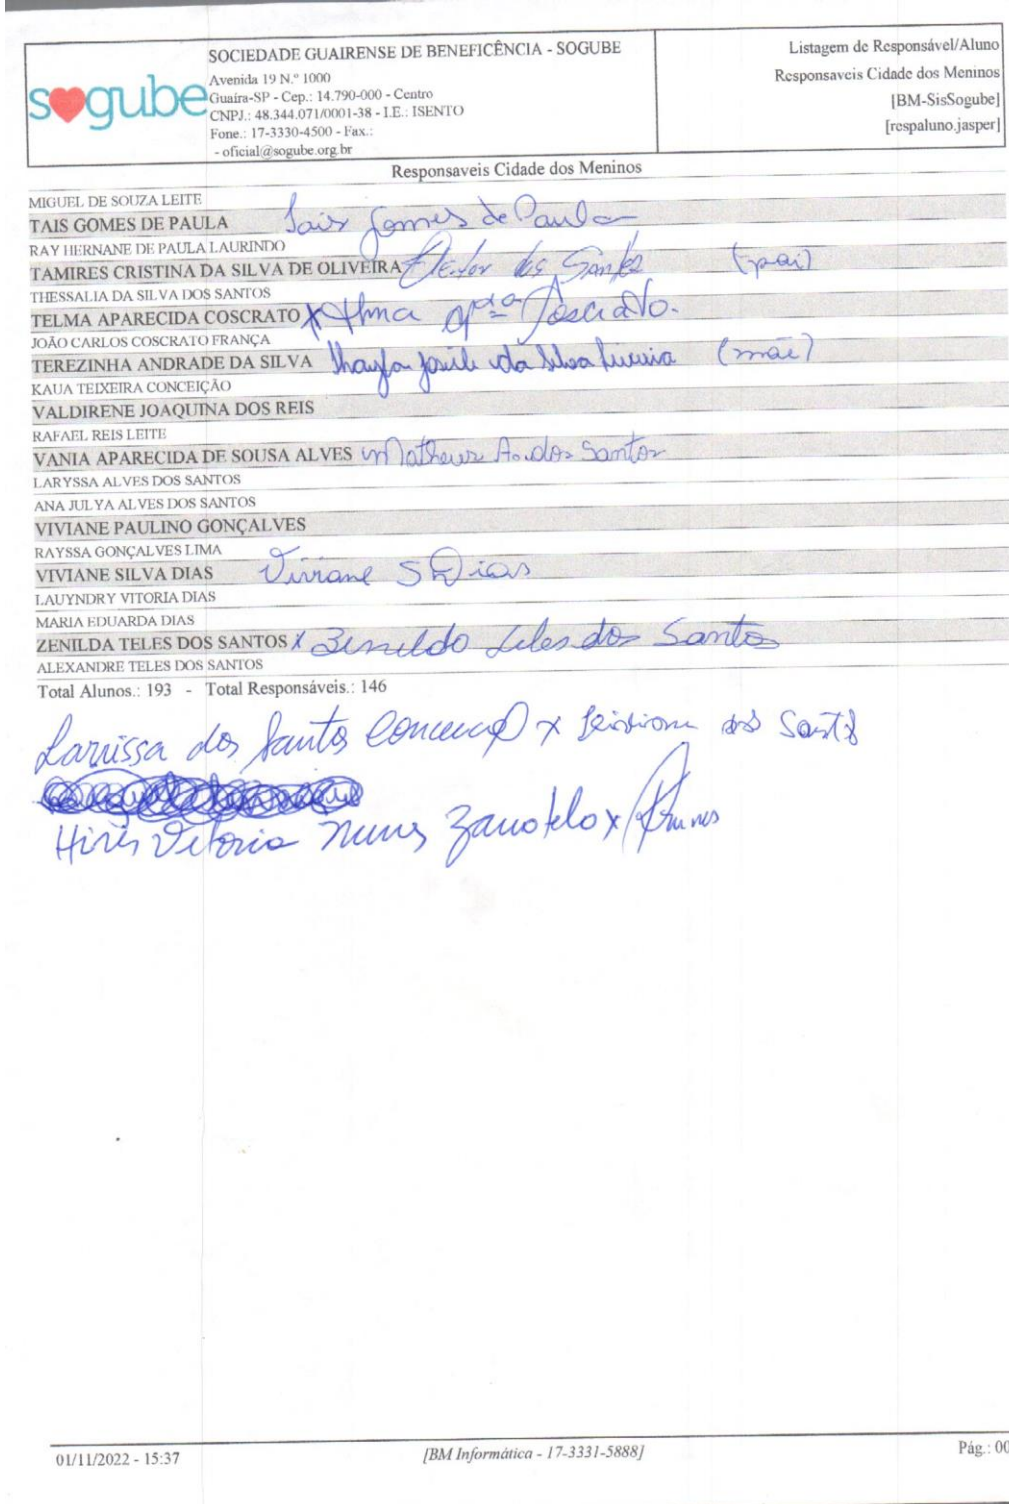 sogube
SOCIEDADE GUAIRENSE DE BENEFICÊNCIA - SOGUBE
Avenida 19 N.º 1000
Guaíra-SP - Cep.: 14.790-000 - Centro
CNPJ.: 48.344.071/0001-38 - I.E.: ISENTO
Fone.: 17-3330-4500 - Fax.:
- oficial@sogube.org.br
Listagem de Responsável/Aluno
Responsaveis Cidade dos Meninos
[BM-SisSogube]
[respaluno.jasper]
Responsaveis Cidade dos Meninos
MIGUEL DE SOUZA LEITE
TAIS GOMES DE PAULA Tais Gomes de Paula
RAY HERNANE DE PAULA LAURINDO
TAMIRES CRISTINA DA SILVA DE OLIVEIRA dos Santos (pai)
THESSALIA DA SILVA DOS SANTOS
TELMA APARECIDA COSCRATO x Telma Apda Coscrato.
JOÃO CARLOS COSCRATO FRANÇA
TEREZINHA ANDRADE DA SILVA da Silva (mãe)
KAUA TEIXEIRA CONCEIÇÃO
VALDIRENE JOAQUINA DOS REIS
RAFAEL REIS LEITE
VANIA APARECIDA DE SOUSA ALVES Matheus A. dos Santos
LARYSSA ALVES DOS SANTOS
ANA JULYA ALVES DOS SANTOS
VIVIANE PAULINO GONÇALVES
RAYSSA GONÇALVES LIMA
VIVIANE SILVA DIAS Viviane S Dias
LAUYNDRY VITORIA DIAS
MARIA EDUARDA DIAS
ZENILDA TELES DOS SANTOS x Zenilda Teles dos Santos
ALEXANDRE TELES DOS SANTOS
Total Alunos.: 193 - Total Responsáveis.: 146
Larrissa dos Santos x dos Santos
Vitoria Nunes Zanotelo x
01/11/2022 - 15:37
[BM Informática - 17-3331-5888]
Pág.: 00